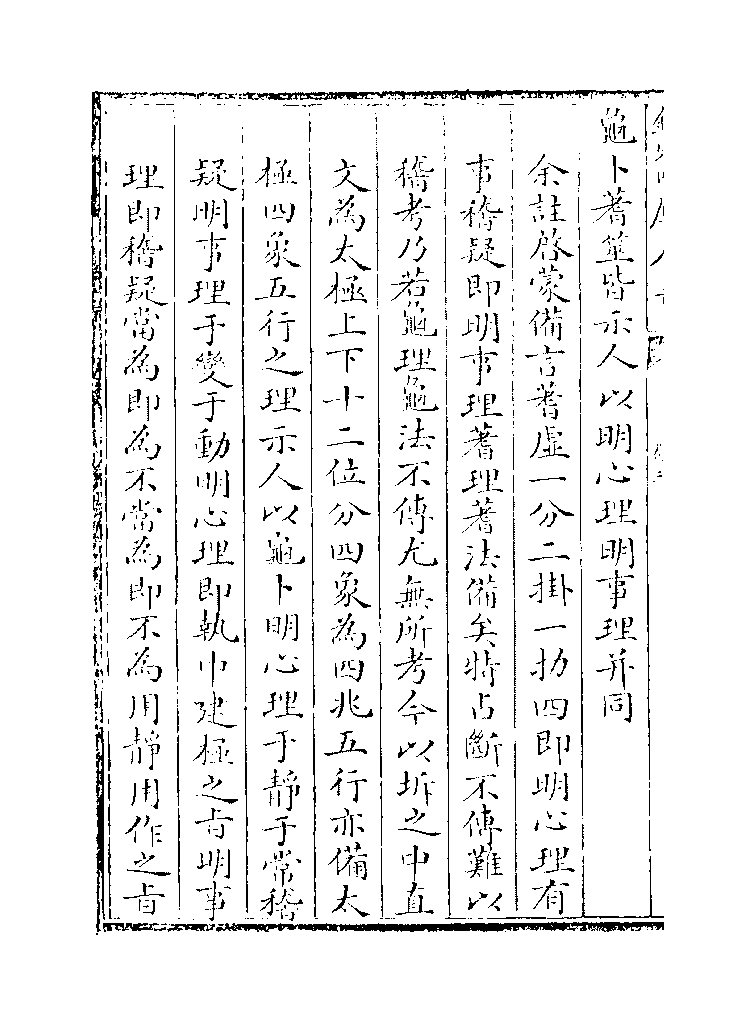 龜卜蓍筮皆示人以明心理明事理并同
余註啓蒙備言蓍虛一分二掛一扐四即明心理有
事稽疑即明事理蓍理蓍法備矣特占斷不傳難以
稽考乃若龜理龜法不傳尤無所考今以坼之中直
文為太極上下十二位分四象為四兆五行亦備太
極四象五行之理示人以龜卜明心理于靜于常稽
疑明事理于變于動明心理即執中建極之㫖明事
理即稽疑當為即為不當為即不為用靜用作之㫖